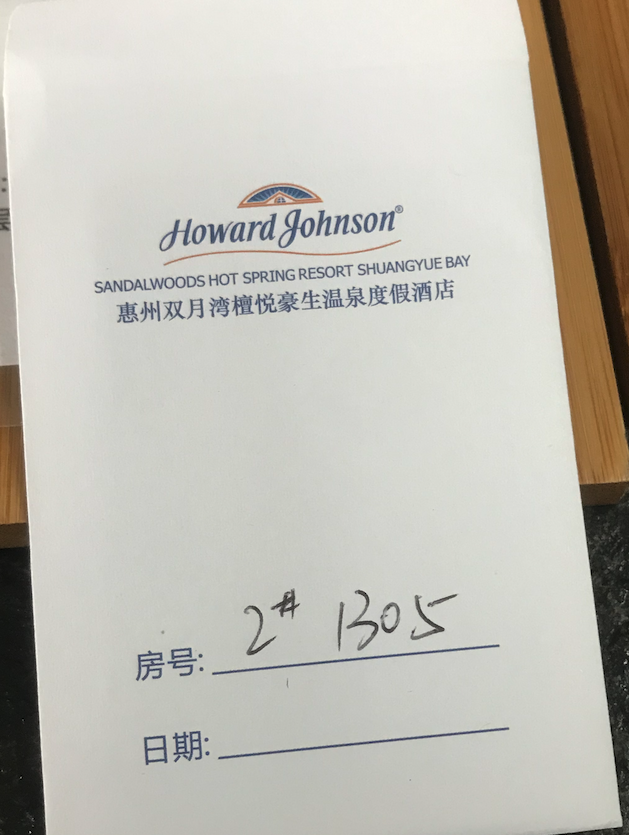 Howard Johnson®
SANDALWOODS HOT SPRING RESORT SHUANGYUE BAY
惠州双月湾檀悦豪生温泉度假酒店
房号: 2# 1305
日期: